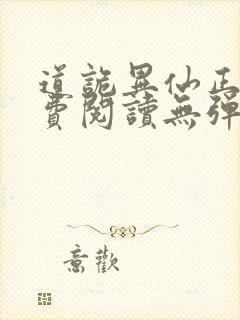 道詭異仙正
費閱讀無彈
意歡